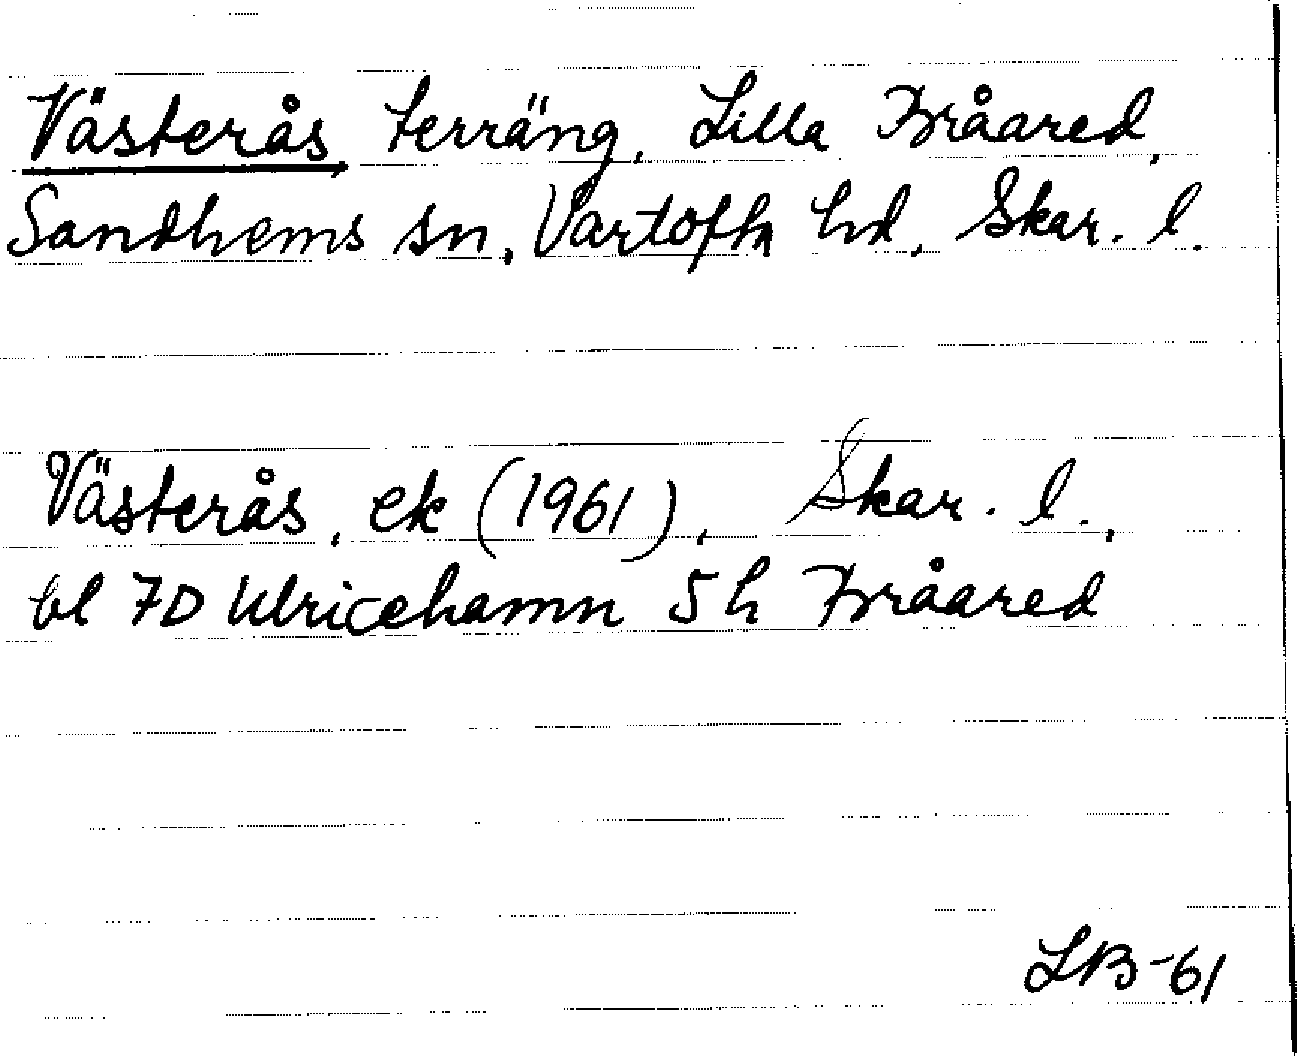 Västerås, terräng, Lilla Bråared,
Sandhems sn, Vartofta hd, Skar. l.
Västerås, ek (1961), Skar. l.,
bl 7D Ulricehamn 5 h Bråared
LB-61